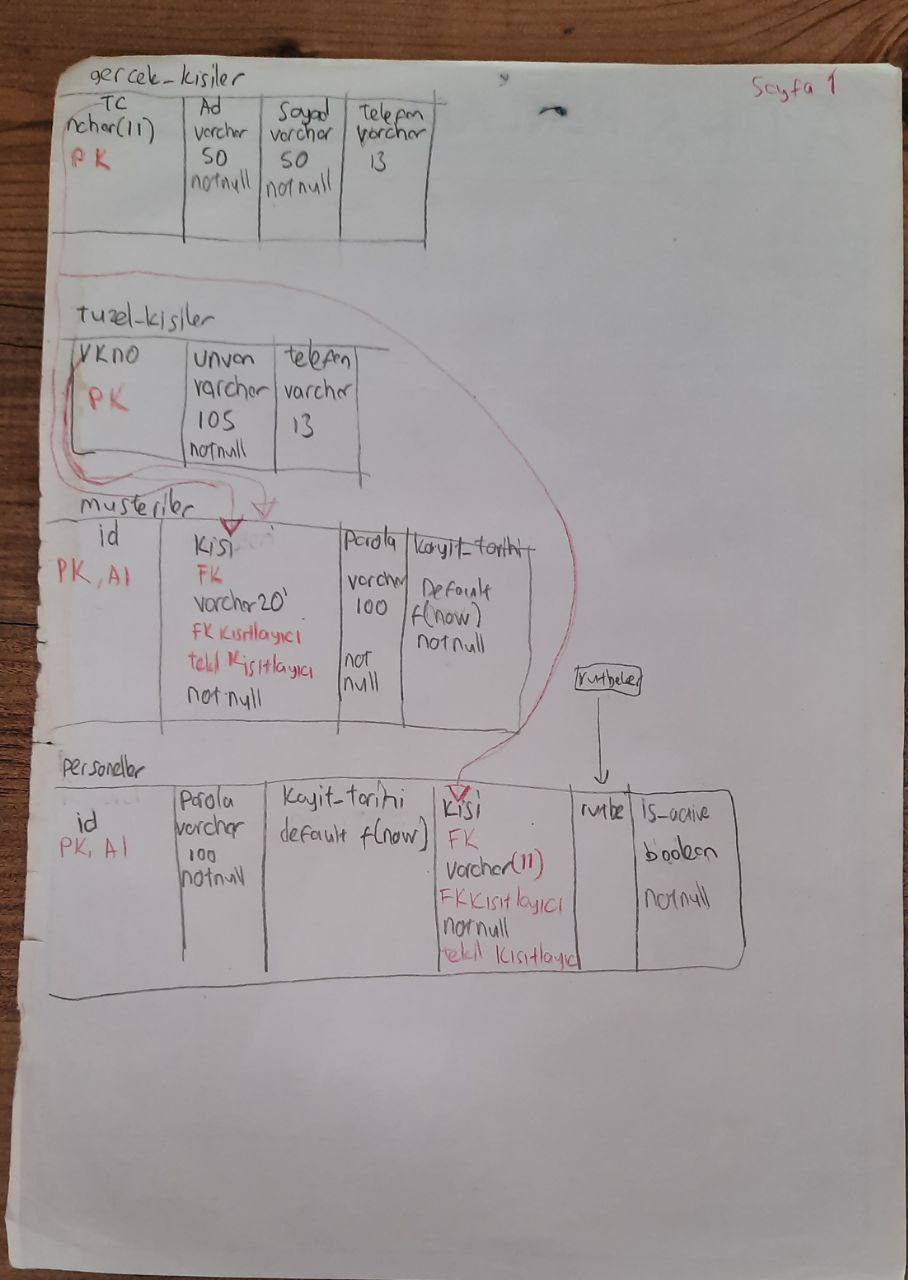 Sayfa 1
gercek_kisiler
TC
nchar(11)
PK
Ad
varchar
50
notnull
Soyad
varchar
50
notnull
telefon
varchar
13
tuzel_kisiler
VKno
PK
unvan
varchar
105
notnull
telefon
varchar
13
musteriler
id
PK, AI
Kisi
FK
varchar20
FK Kısıtlayıcı
tekil Kısıtlayıcı
notnull
parola
varchar
100
not
null
Kayit_tarihi
Default
f(now)
notnull
rutbeler
personeller
id
PK, AI
Parola
varchar
100
notnull
Kayit_tarihi
default f(now)
Kisi
FK
varchar(11)
FK Kısıtlayıcı
notnull
tekil Kısıtlayıcı
rutbe
is_active
boolean
notnull